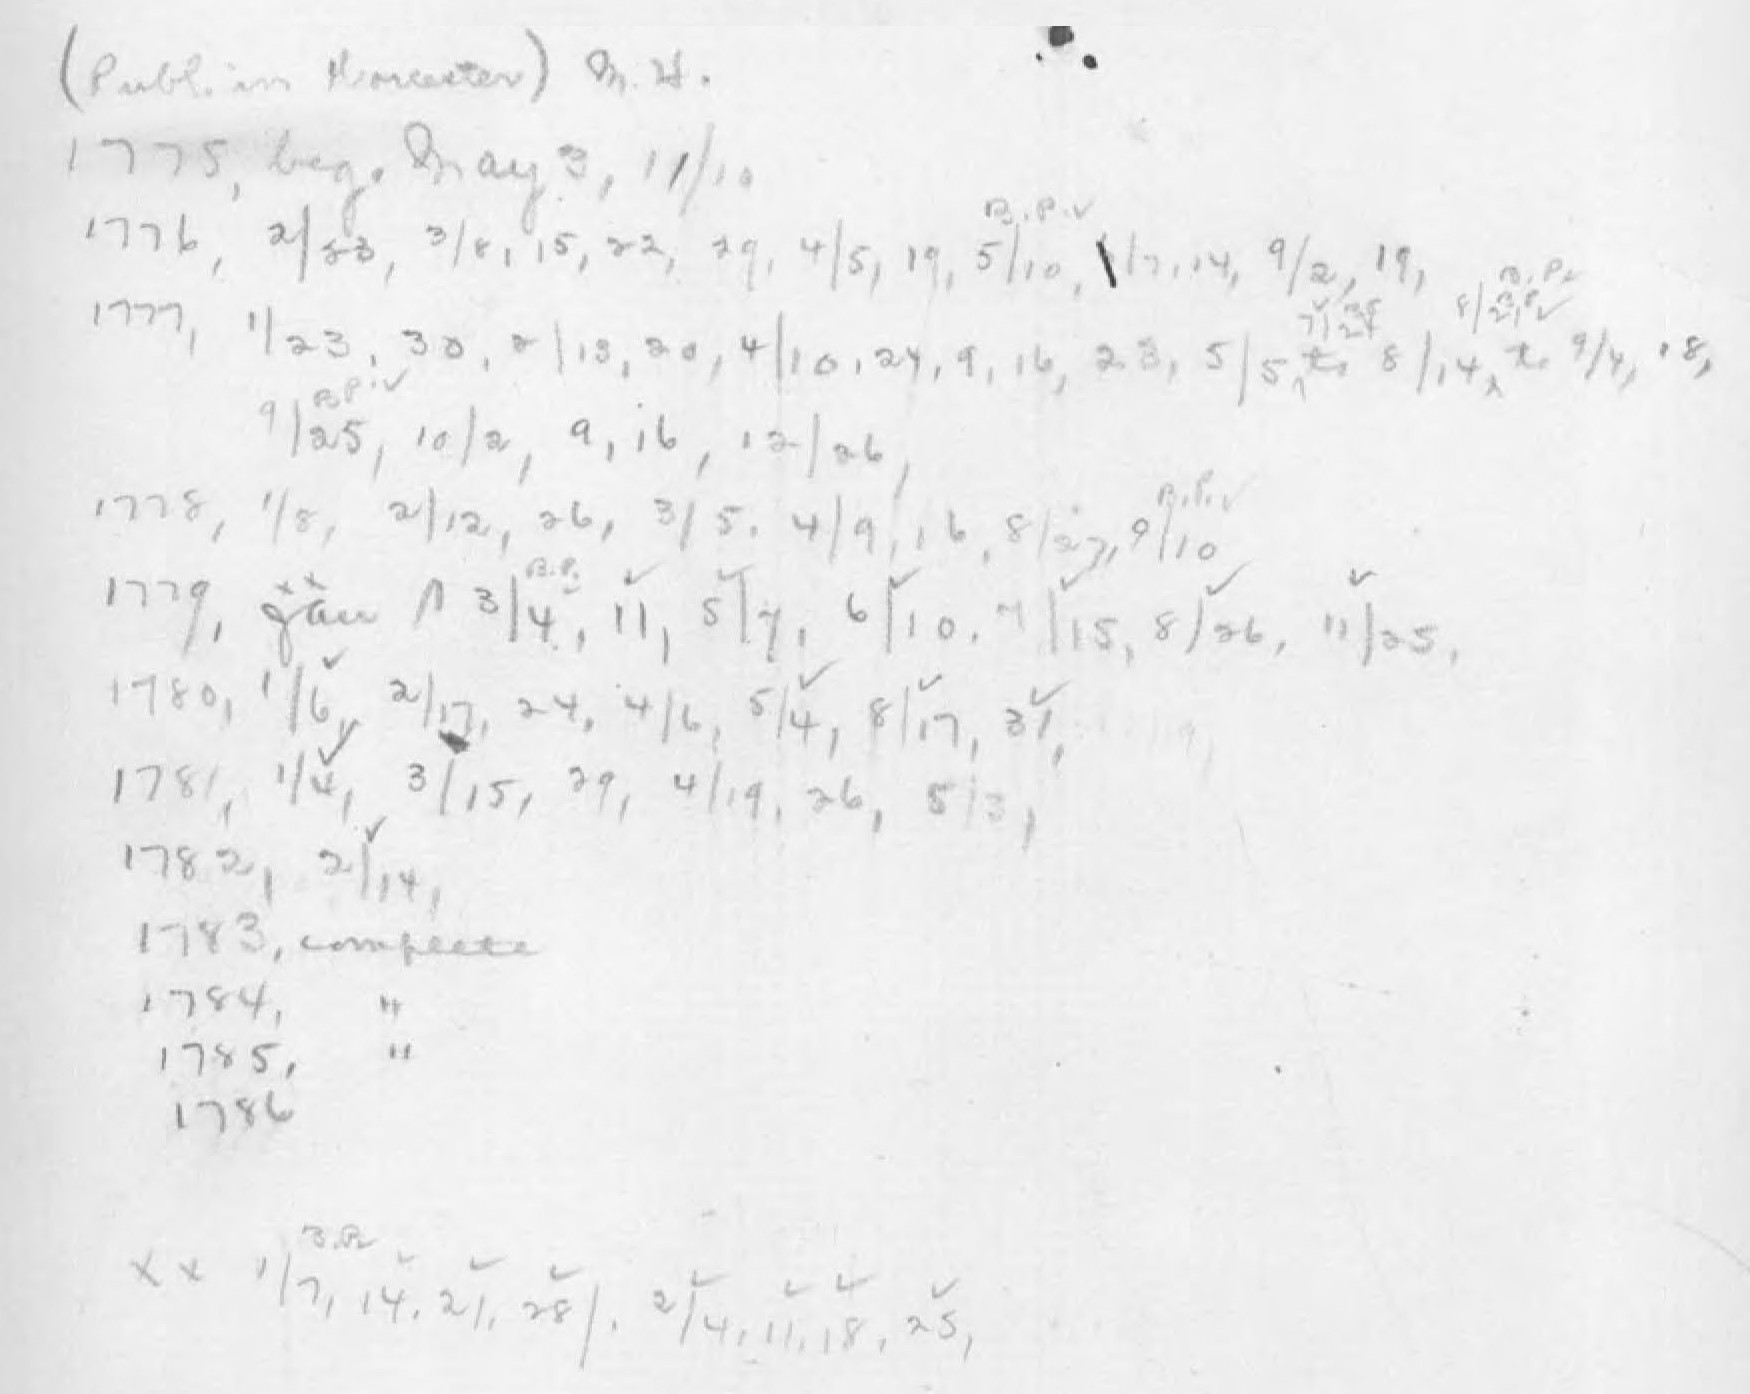 (Publ. in Worcester) M.H.
1775, beg. May 3, 11/10
B.P. ✓
1776, 2/23, 3/8, 15, 22, 29, 4/5, 19, 5/10, /7, 14, 9/2, 19,
B.P. ✓
8/21 B.P. ✓
1777, 1/23, 30, 2/13, 20, 4/10, 24, 9, 16, 23, 5/5, to 8/14, to 9/4, 18,
B.P. ✓
9/25, 10/2, 9, 16, 12/26,
B.P. ✓
1778, 1/8, 2/12, 26, 3/5, 4/9, 16, 8/27, 9/10
xx B.P. ✓ ✓ ✓ ✓ ✓ ✓ ✓
1779, Jan ∧ 3/4, 11, 5/7, 6/10, 7/15, 8/26, 11/25,
✓ ✓ ✓ ✓
1780, 1/6, 2/17, 24, 4/6, 5/4, 8/17, 31,
✓
1781, 1/4, 3/15, 29, 4/19, 26, 5/3,
✓
1782, 2/14,
1783, complete
1784, "
1785, "
1786
B.P. ✓ ✓ ✓ ✓ ✓ ✓ ✓
xx 1/7, 14, 21, 28/. 2/4, 11, 18, 25,